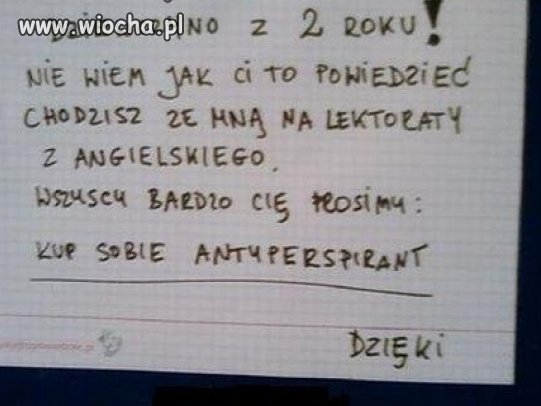 www.wiocha.pl
Z 2 ROKU!
NIE WIEM JAK CI TO POWIEDZIEĆ
CHODZISZ ZE MNĄ NA LEKTORATY
Z ANGIELSKIEGO.
WSZYSCY BARDZO CIĘ PROSIMY:
KUP SOBIE ANTYPERSPIRANT
DZIĘKI